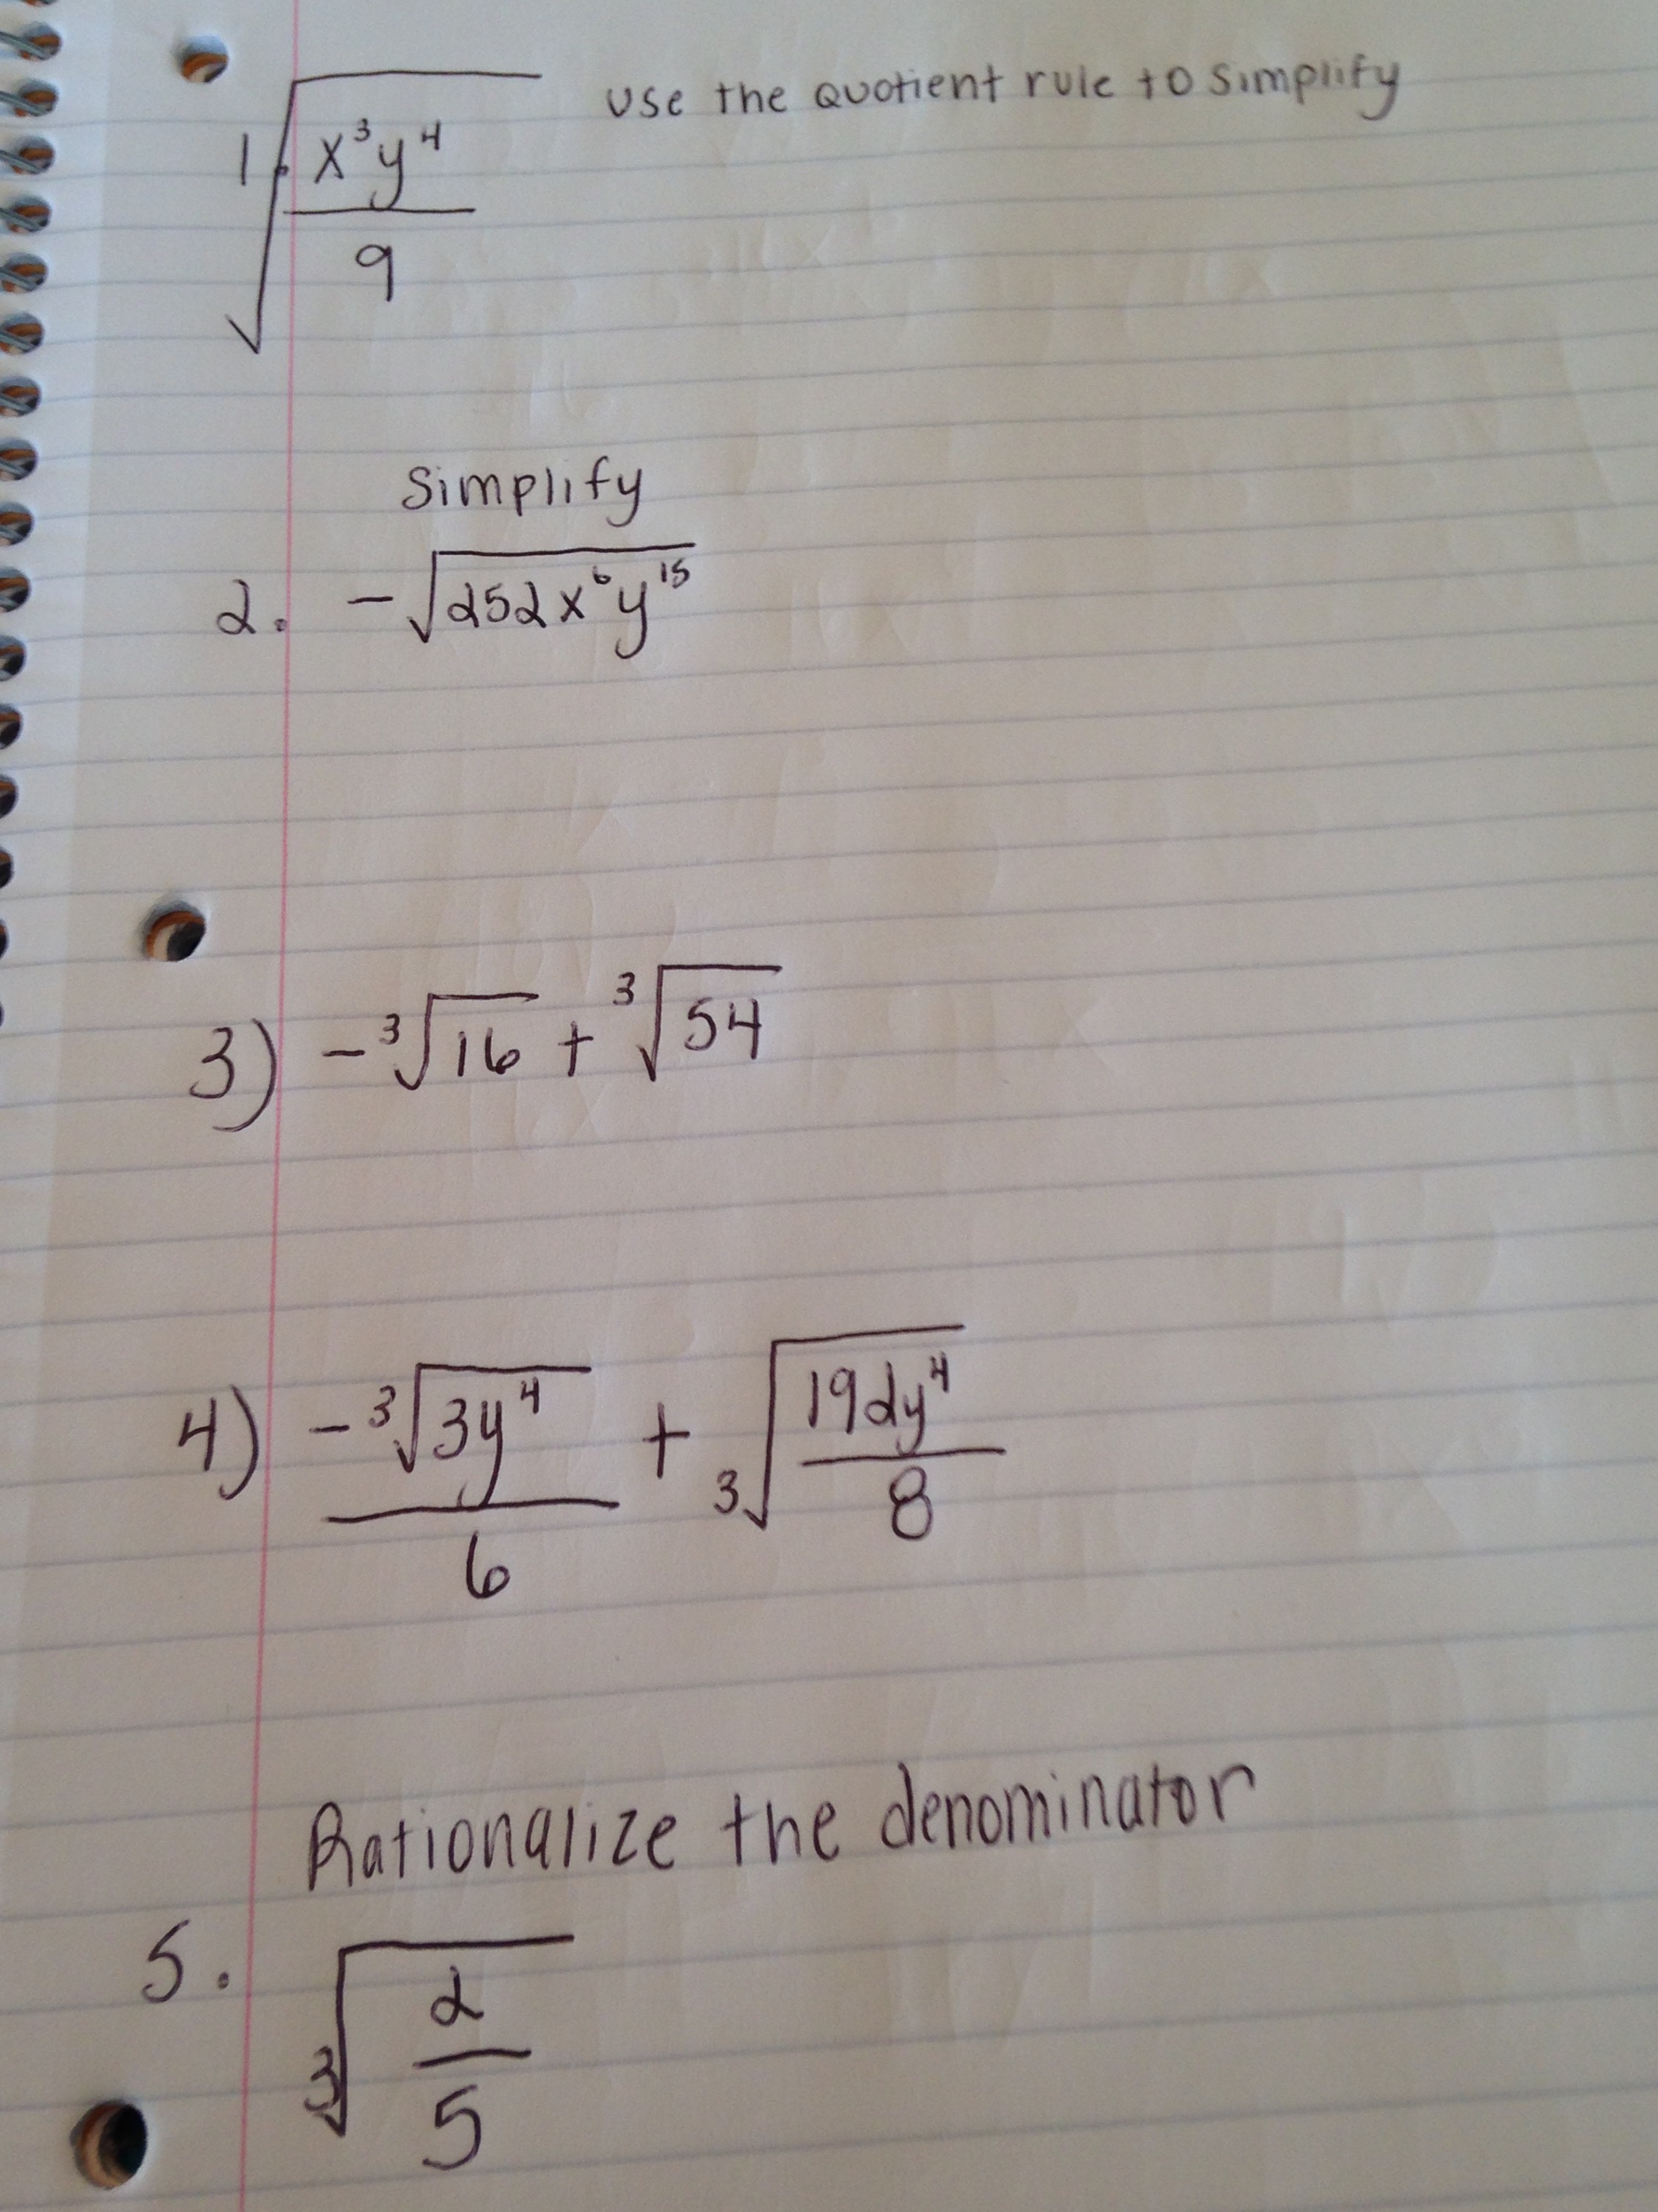 1. √(x³y⁴/9) Use the Quotient rule to simplify
Simplify
2. -√(252x⁶y¹⁵)
3) -³√16 + ³√54
4) -³√(3y⁴)/6 + ³√(192y⁴/8)
Rationalize the denominator
5. ³√(2/5)